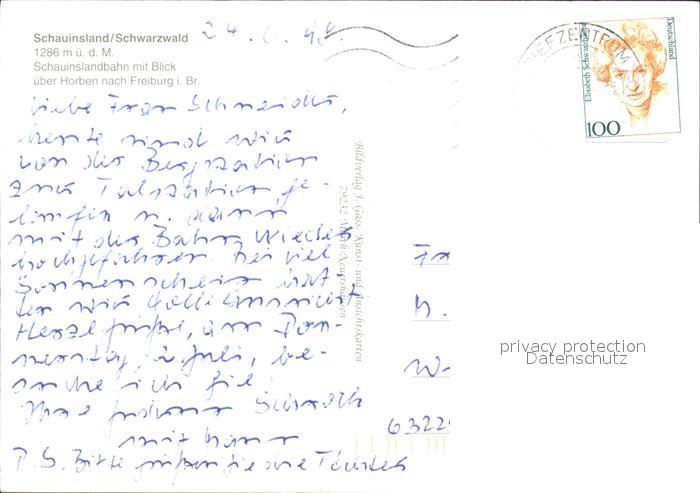 Schauinsland/Schwarzwald
1286 m ü. d. M.
Schauinslandbahn mit Blick
über Horben nach Freiburg i. Br.
24. 6. 98
Liebe Frau Schneider,
heute sind wir
von der Bergstation
zur Talstation ge-
laufen u. dann
mit der Bahn wieder
hochgefahren. Bei viel
Sonnenschein hat-
ten wir tolle
Herzl. Grüße, am Don-
nerstag, 2. Juli, be-
suche ich Sie.
Ihre
mit
P.S. Bitte grüßen Sie
Bildverlag
Kunst- und Ansichtskarten
BRIEFZENTRUM
Elisabeth Schwarzhaupt
Deutschland
100
63225
privacy protection
Datenschutz